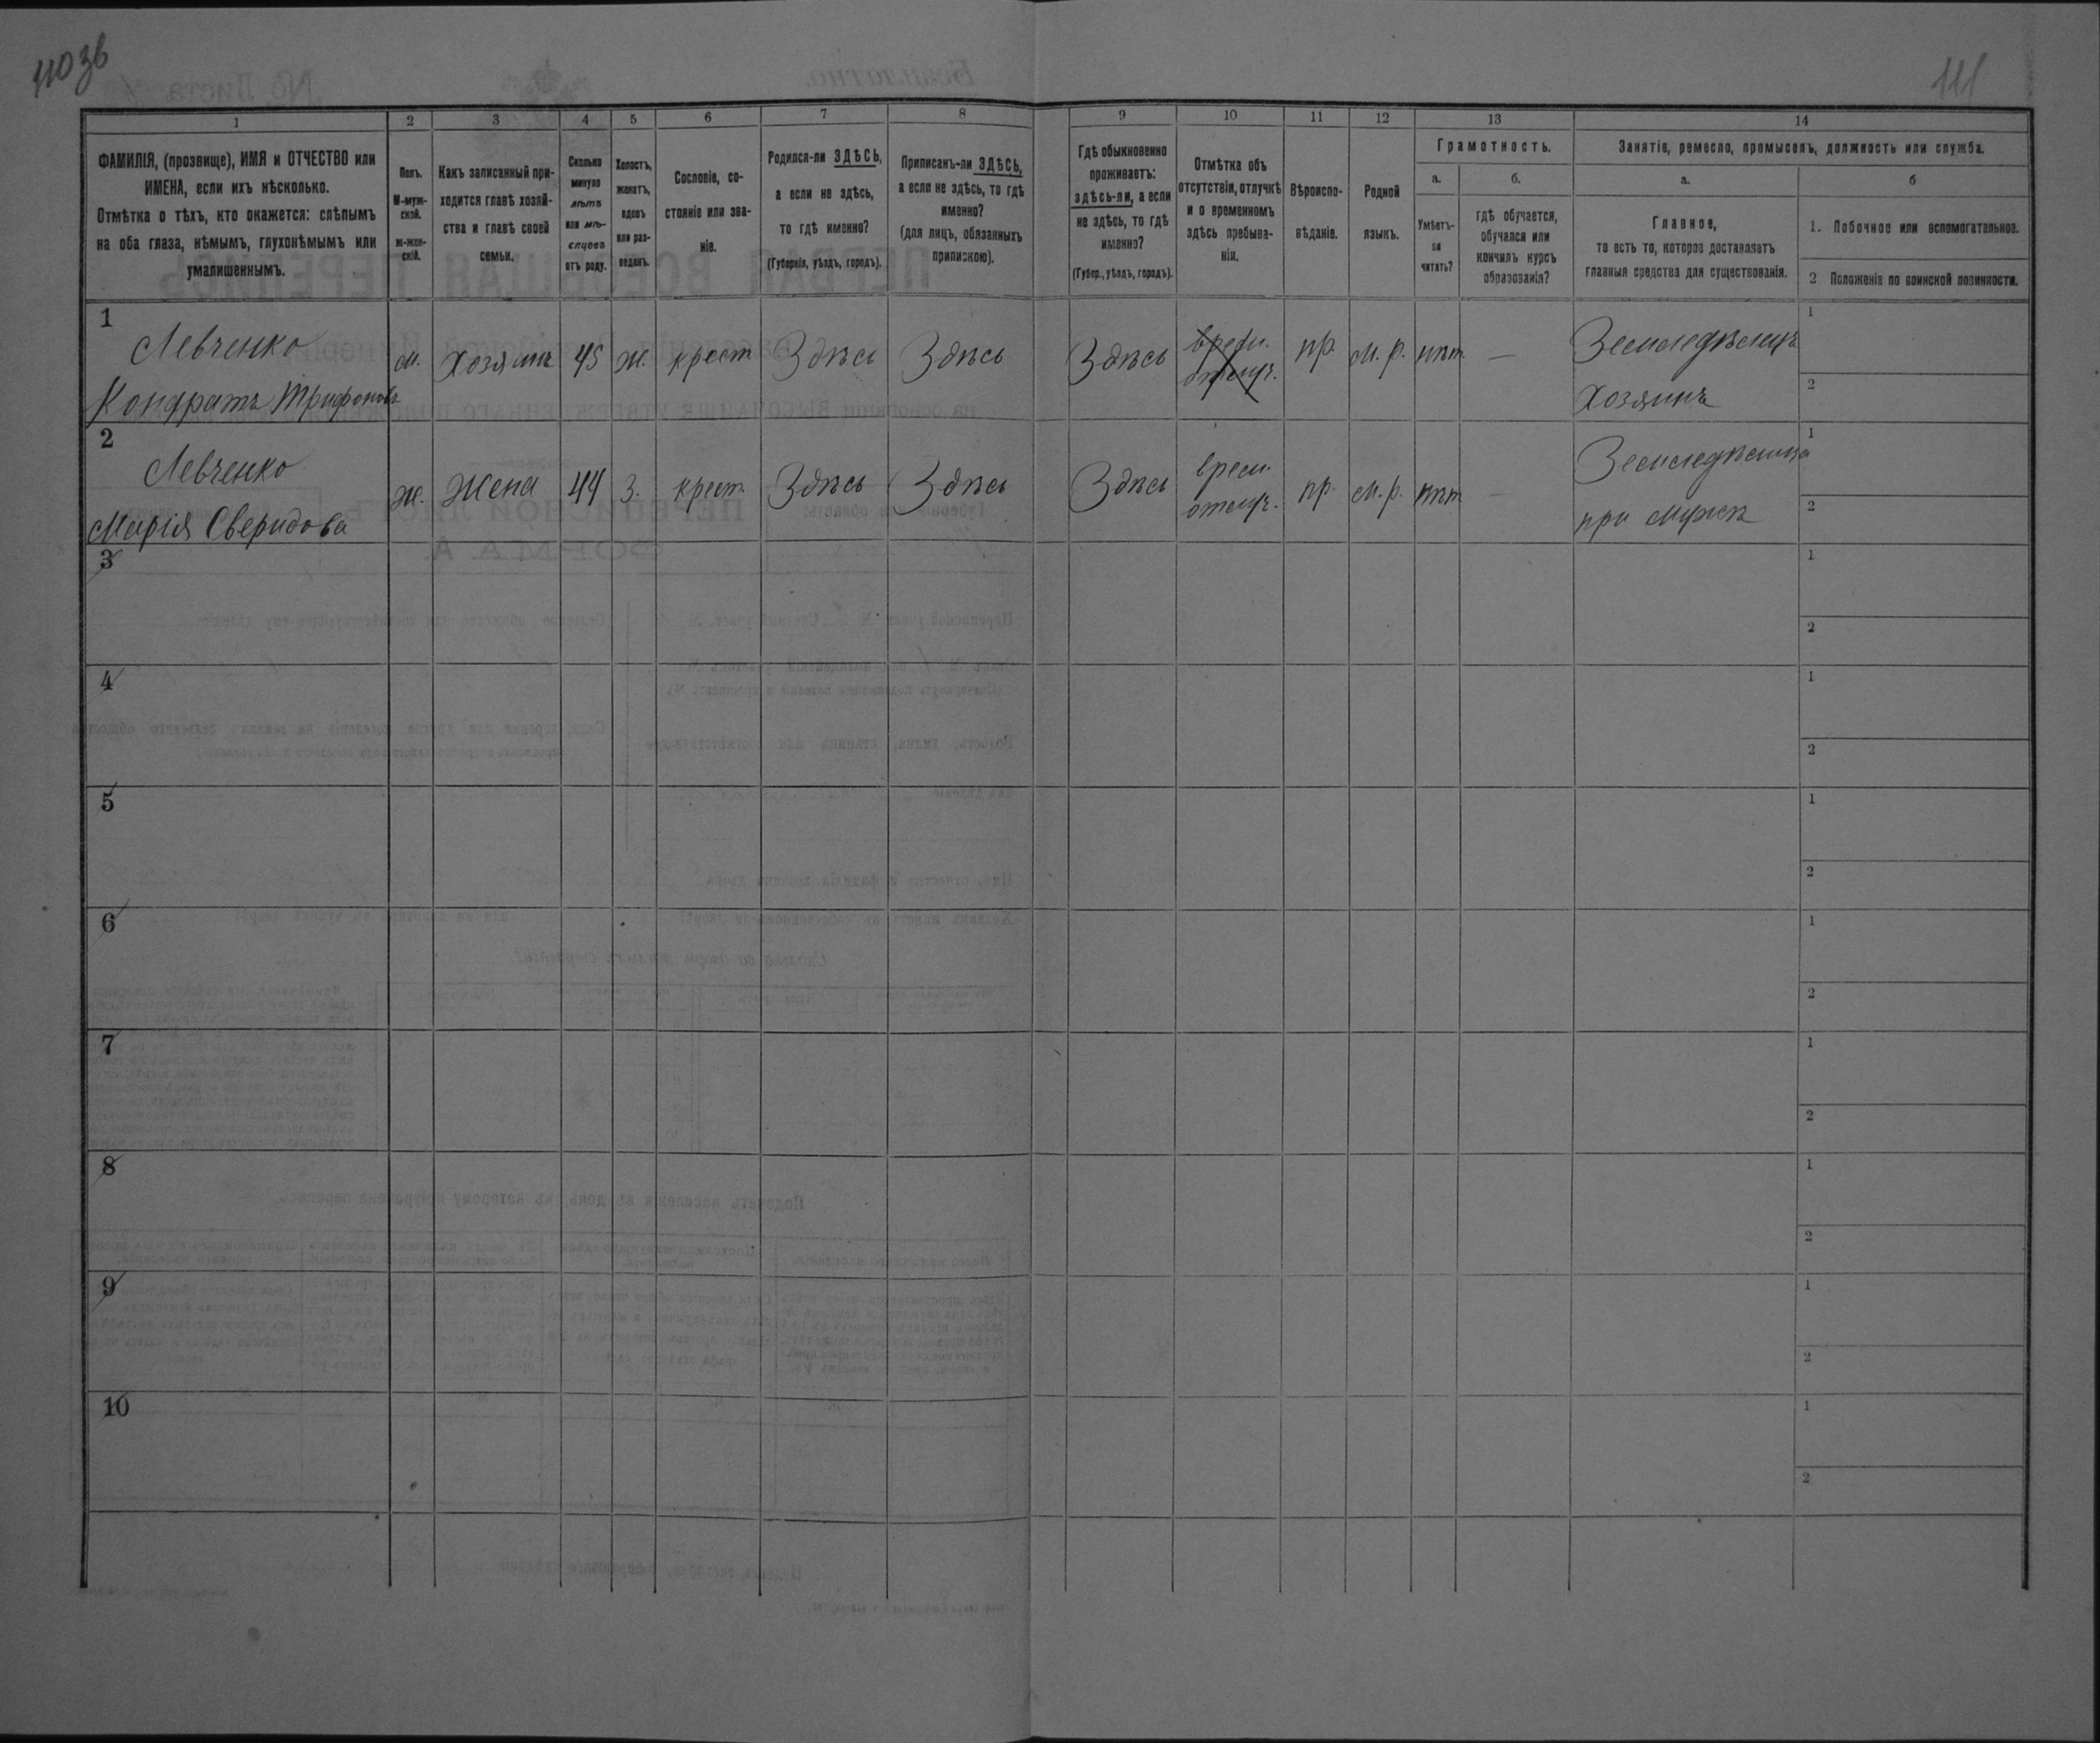 110 зв
111
1
2
3
4
5
6
7
8
9
10
11
12
13
14
ФАМИЛІЯ, (прозвище), ИМЯ и ОТЧЕСТВО или
ИМЕНА, если ихъ нѣсколько.
Отмѣтка о тѣхъ, кто окажется: слѣпымъ
на оба глаза, нѣмымъ, глухонѣмымъ или
умалишеннымъ.
Полъ.
М-муж-
ской.
Ж-жен-
скій.
Какъ записанный при-
ходится главѣ хозяй-
ства и главѣ своей
семьи.
Сколько
минуло
лѣтъ
или мѣ-
сяцевъ
отъ роду.
Холостъ,
женатъ,
вдовъ
или раз-
веденъ.
Сословіе, со-
стояніе или зва-
ніе.
Родился-ли ЗДѢСЬ,
а если не здѣсь,
то гдѣ именно?
(Губернія, уѣздъ, городъ).
Приписанъ-ли ЗДѢСЬ,
а если не здѣсь, то гдѣ
именно?
(для лицъ, обязанныхъ
припискою).
Гдѣ обыкновенно
проживаетъ:
здѣсь-ли, а если
не здѣсь, то гдѣ
именно?
(Губер., уѣздъ, городъ).
Отмѣтка объ
отсутствіи, отлучкѣ
и о временномъ
здѣсь пребыва-
ніи.
Вѣроиспо-
вѣданіе.
Родной
языкъ.
Грамотность.
а.
Умѣетъ-
ли
читать?
б.
гдѣ обучается,
обучался или
кончилъ курсъ
образованія?
Занятіе, ремесло, промыселъ, должность или служба.
а.
Главное,
то есть то, которое доставляетъ
главныя средства для существованія.
б
1. Побочное или вспомогательное.
2 Положеніе по воинской повинности.
1
Левченко
Кондратъ Трифоновъ
м. Хозяинъ 45 ж. крест Здѣсь Здѣсь Здѣсь
врем.
отлуч.
пр. м.р. нѣт —
Земледѣлецъ
Хозяинъ
1
2
2
Левченко
Марія Сверидова
ж. Жена 44 з. крест. Здѣсь Здѣсь Здѣсь
врем.
отлуч.
пр. м.р. нѣт —
Земледѣлица
при мужѣ
1
2
3
1
2
4
1
2
5
1
2
6
1
2
7
1
2
8
1
2
9
1
2
10
1
2